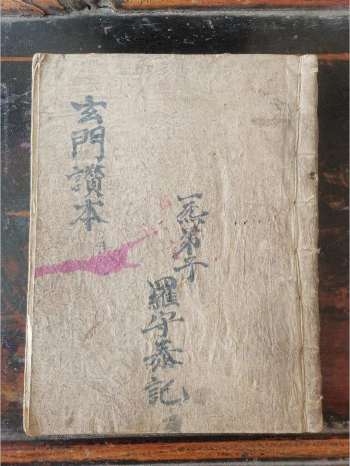 玄門讚本
一炁弟子
羅守泰記